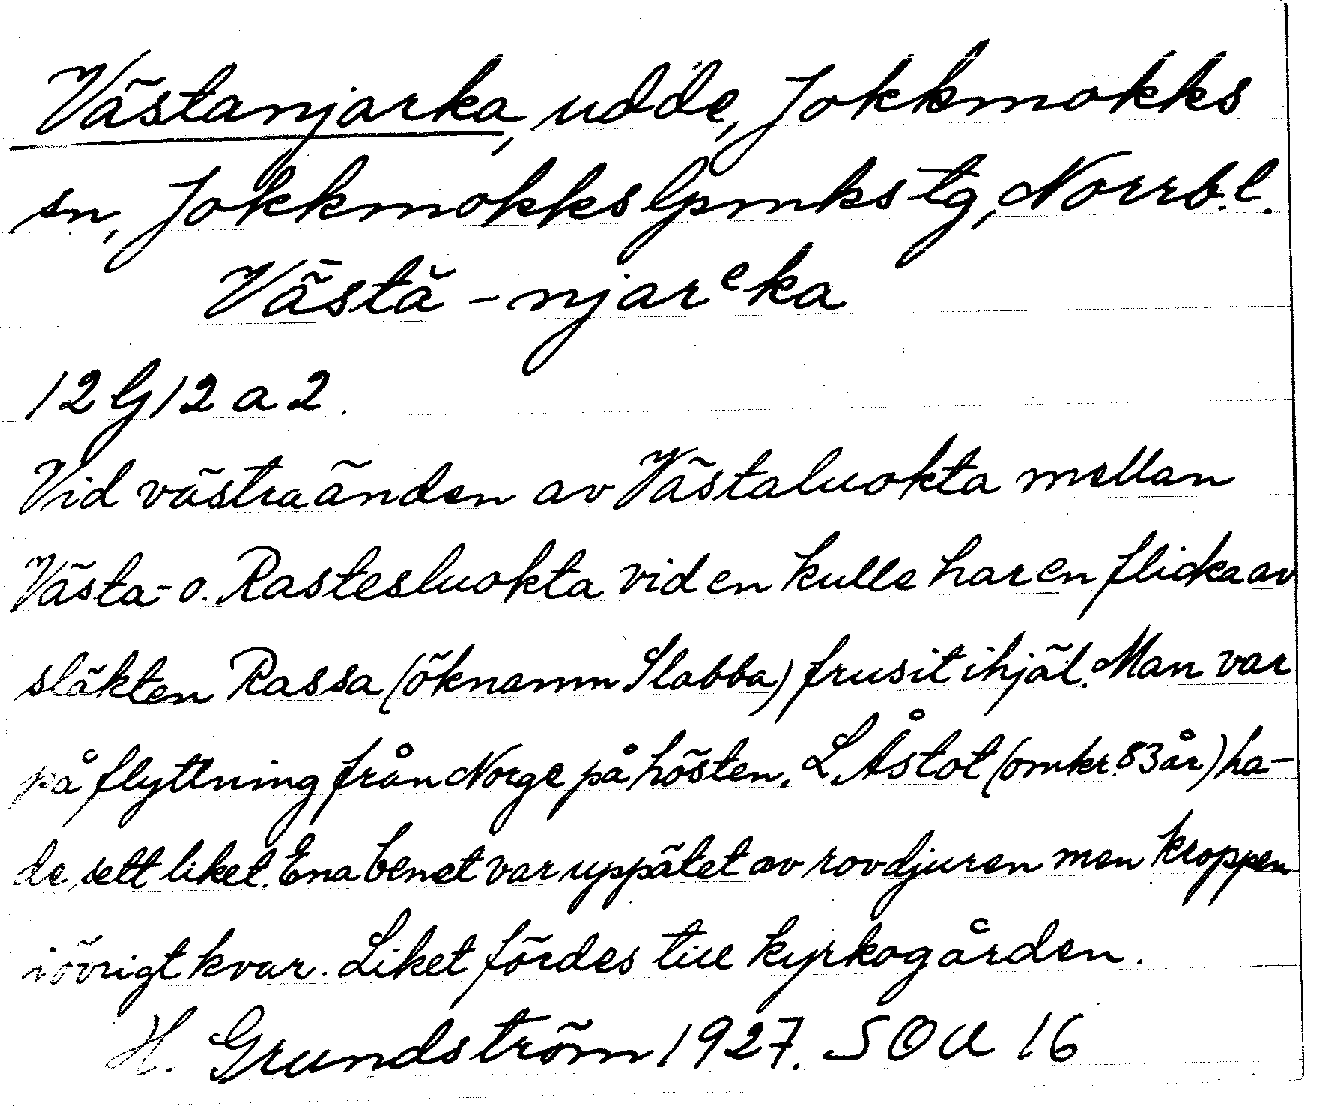 Västanjarka, udde, Jokkmokks
sn, Jokkmokks lpmks tg, Norrb.l.
Västă - njarᵉka
12 G 12 a 2.
Vid västraänden av Västaluokta mellan
Västa- o. Rastesluokta vid en kulle har en flicka av
släkten Rassa (öknamn Slabba) frusit ihjäl. Man var
på flyttning från Norge på hösten. L. Åstot (omkr. 83 år) ha-
de sett liket. Ena benet var uppätet av rovdjuren men kroppen
iövrigt kvar. Liket fördes till kyrkogården.
H. Grundström 1927. SOU 16